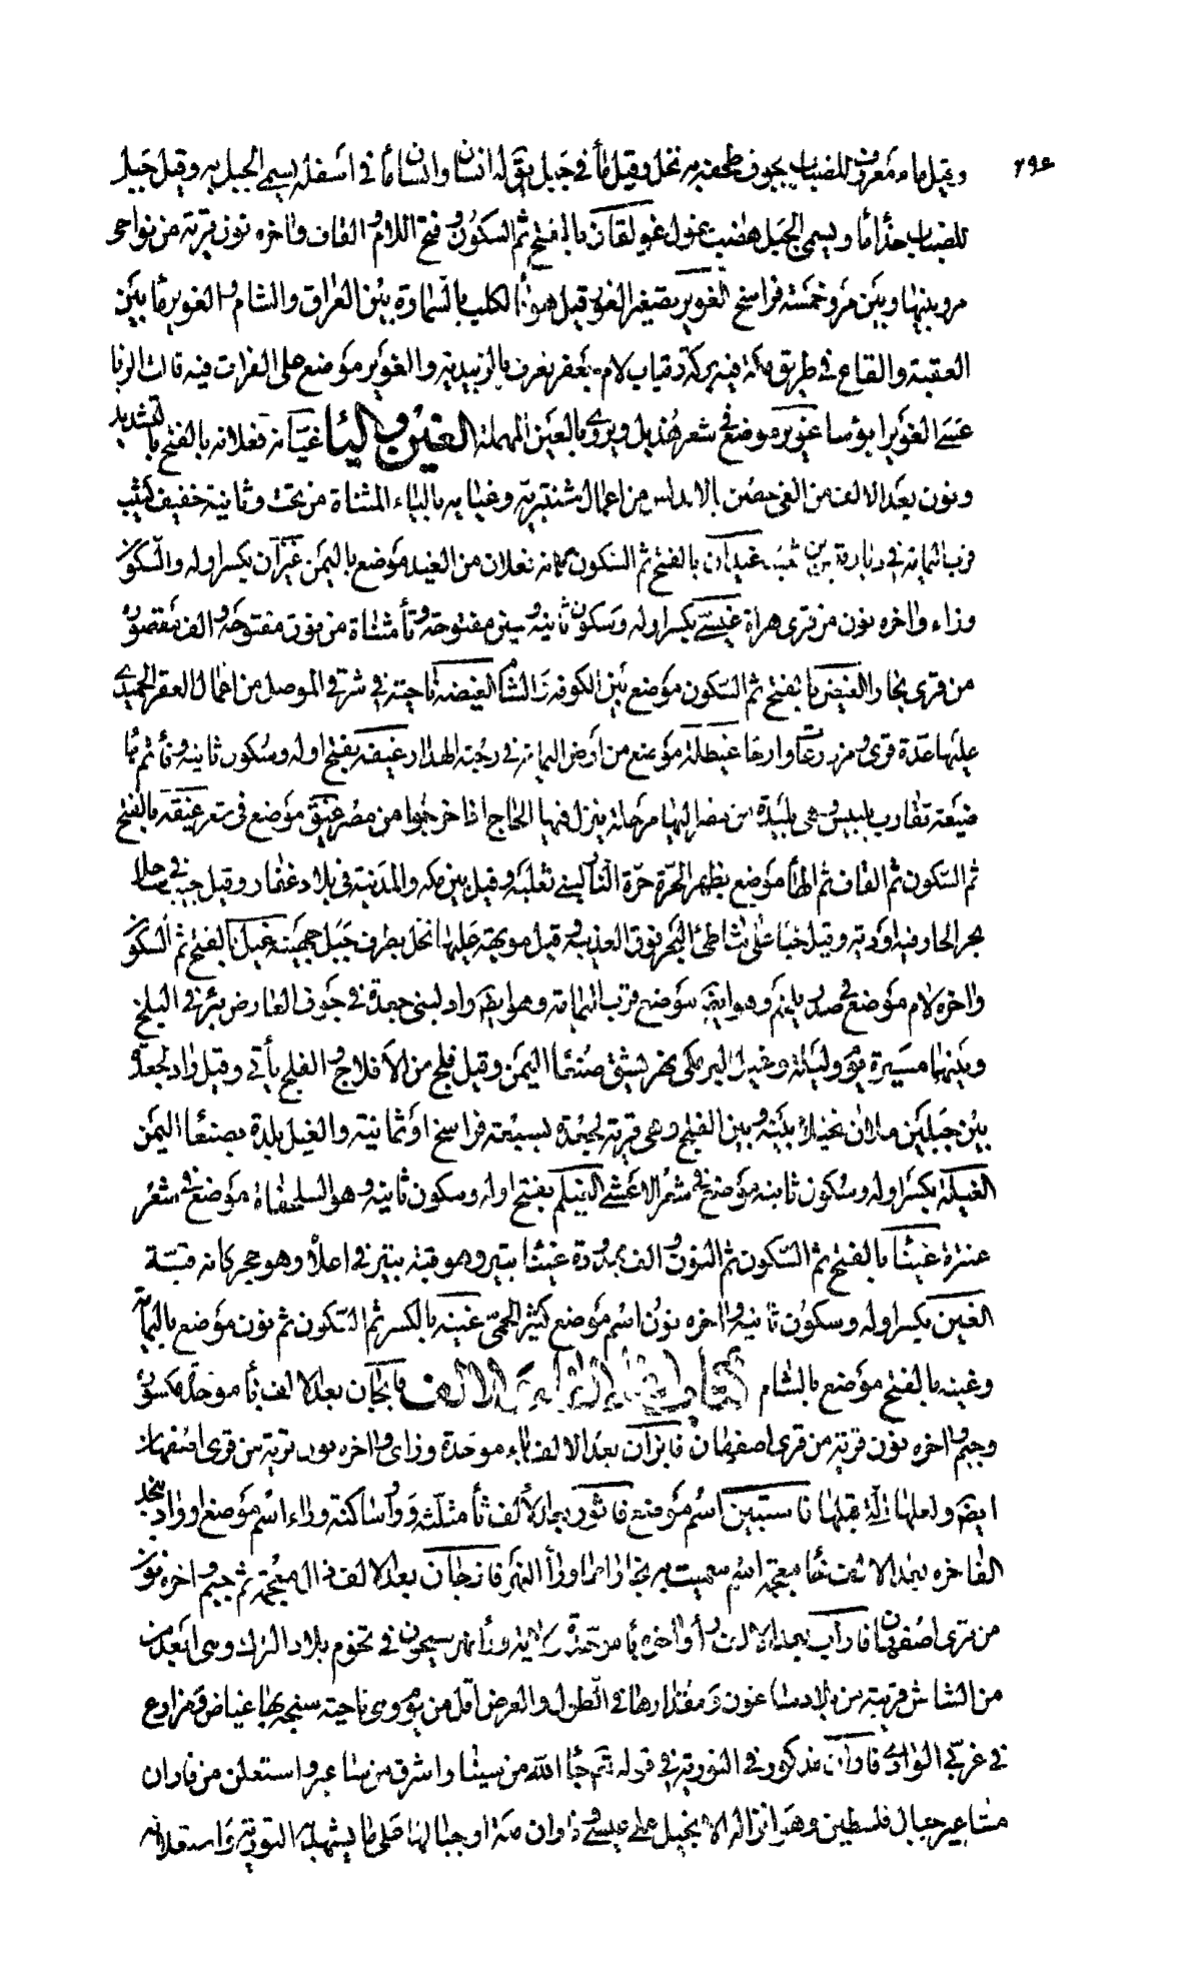 ٢٩٤
وقيل ماء معروف للضباب بجوف طخفة به نخل وقيل ماء في جبل يقال له انسان وانسان ماء في اسفله يسمى الجبل به وقيل جبل
للضباب حذاءها ويسمى الجبل هضب غول غولقان بالفتح ثم السكون وفتح اللام والقاف واخره نون قرية من نواحي
مرو بينها وبين مرو خمسة فراسخ الغوير بتصغير الغور قيل هو ماء لكلب بالسماوة بين العراق والشام والغوير ما بين
العقبة والقاع في طريق مكة فيه بركة وقباب لام جعفر تعرف بالزبيدية والغوير موضع على الفرات فيه قالت الزبا
عسى الغوير ابؤسا غوير موضع في شعر هذيل ويروى بالعين المهملة الغين واليا غيانة فعلانة بالفتح بالتشديد
ونون بعد الالف من الغي حصن بالاندلس من اعمال شنتبرية وغيابه بالياء المثناة من تحت وثانية خفيف كثيب
قرب اليمامة في ديار قيس بن ثعلبة غيدان بالفتح ثم السكون كانه فعلان من الغيد موضع باليمن غيزان بكسر اوله والسكون
وزاء واخره نون من قرى هراة غيشتى بكسر اوله وسكون ثانيه وشين مفتوحة وتاء مثناة من فوق مفتوحة والف مقصورة
من قرى بخارا الغيض بالفتح ثم السكون موضع بين الكوفة والشام الغيضة ناحية في شرقي الموصل من اعمال العقر الحميدي
عليها عدة قرى ومزدرعات وارحا غيطلة موضع من ارض اليمامة في رحبة الهدار غيفة بفتح اوله وسكون ثانيه وفاء ثم ها
ضيعة تقارب بلبيس وهي بليدة من مصر اليها مرحلة ينزل فيها الحاج اذا خرجوا من مصر غيق موضع في شعر غيقة بالفتح
ثم السكون ثم القاف ثم الهاء موضع بظهر الحرة حرة النار لبني ثعلبة وقيل بين مكة والمدينة في بلاد غفار وقيل خبت في ساحل
بحر الجار فيه اودية وقيل خبا على شاطئ البحر فوق العذيبة وقيل مويهة عليها نخل بطرف جبل جهينة غيل بالفتح ثم السكون
واخره لام موضع في صدر يلملم وهو ايضا موضع قرب اليمامة وهو ايضا واد لبني جعدة في جوف العارض يسير في الفلج
وبينهما مسيرة يوم وليلة وغيل البرمكي نهر يشق صنعا اليمن وقيل فلج من الافلاج والفلج يأتي وقيل واد لجعدة
بين جبلين ملان نخيلا بينه وبين الفلج وهي قرية لجعدة سبعة فراسخ او ثمانية والغيل بلدة بصنعا اليمن
الغيلة بكسر اوله وسكون ثانيه موضع في شعر الاعشى الغيلم بفتح اوله وسكون ثانيه وهو السلحفاة موضع في شعر
عنترة غيثا بالفتح ثم السكون ثم النون والف ممدودة غيثا ثبير وهو قبة ثبير في اعلاه وهو حجر كانه قبة
الغين بكسر اوله وسكون ثانيه واخره نون اسم موضع كثير الحمى غينه بالكسر ثم السكون ثم نون موضع باليمامة
وغينه بالفتح موضع بالشام كتاب الفاء الفاء مع الالف فابجان بعد الالف باء موحدة مكسورة
وجيم واخره نون قرية من قرى اصفهان فابزان بعد الالف باء موحدة وزاى واخره نون قرية من قرى اصفهان
ايضا ولعلها التي قبلها فاستبين اسم موضع فاثور بعد الالف ثاء مثلثة وواو ساكنة وراء اسم موضع او واد بنجد
الفاخره بعد الالف خاء معجمة اسم سميت به بخارا بما وراء النهر فاذجان بعد الالف ذال معجمة ثم جيم واخره نون
من قرى اصفهان فاراب بعد الالف راء واخره باء موحدة ولاية وراء نهر سيحون في تخوم بلاد الترك وهي ابعد من
من الشاش قريبة من بلادسا غون ومقدارها في الطول والعرض اقل من يوم وهي ناحية سبخة بها غياض ومزارع
في غربي الوادي فاران مذكور في التورية في قوله تم جا الله من سينا واشرق من ساعير واستعلن من فاران
سا عير جبال فلسطين وهو انزاله الانجيل على عيسى وفاران مكة او جبالها على ما يشهد به التورية واستعلانه